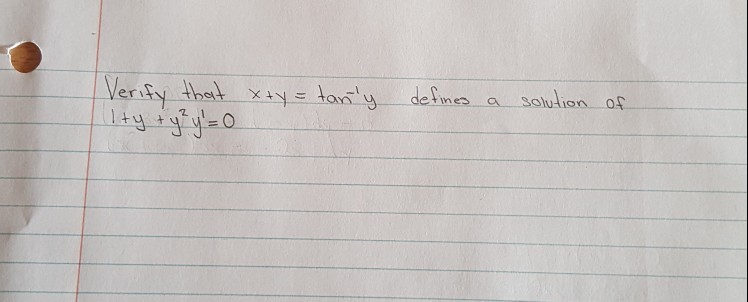 Verify that x+y = tan⁻¹y defines a solution of
1+y +y²y'=0